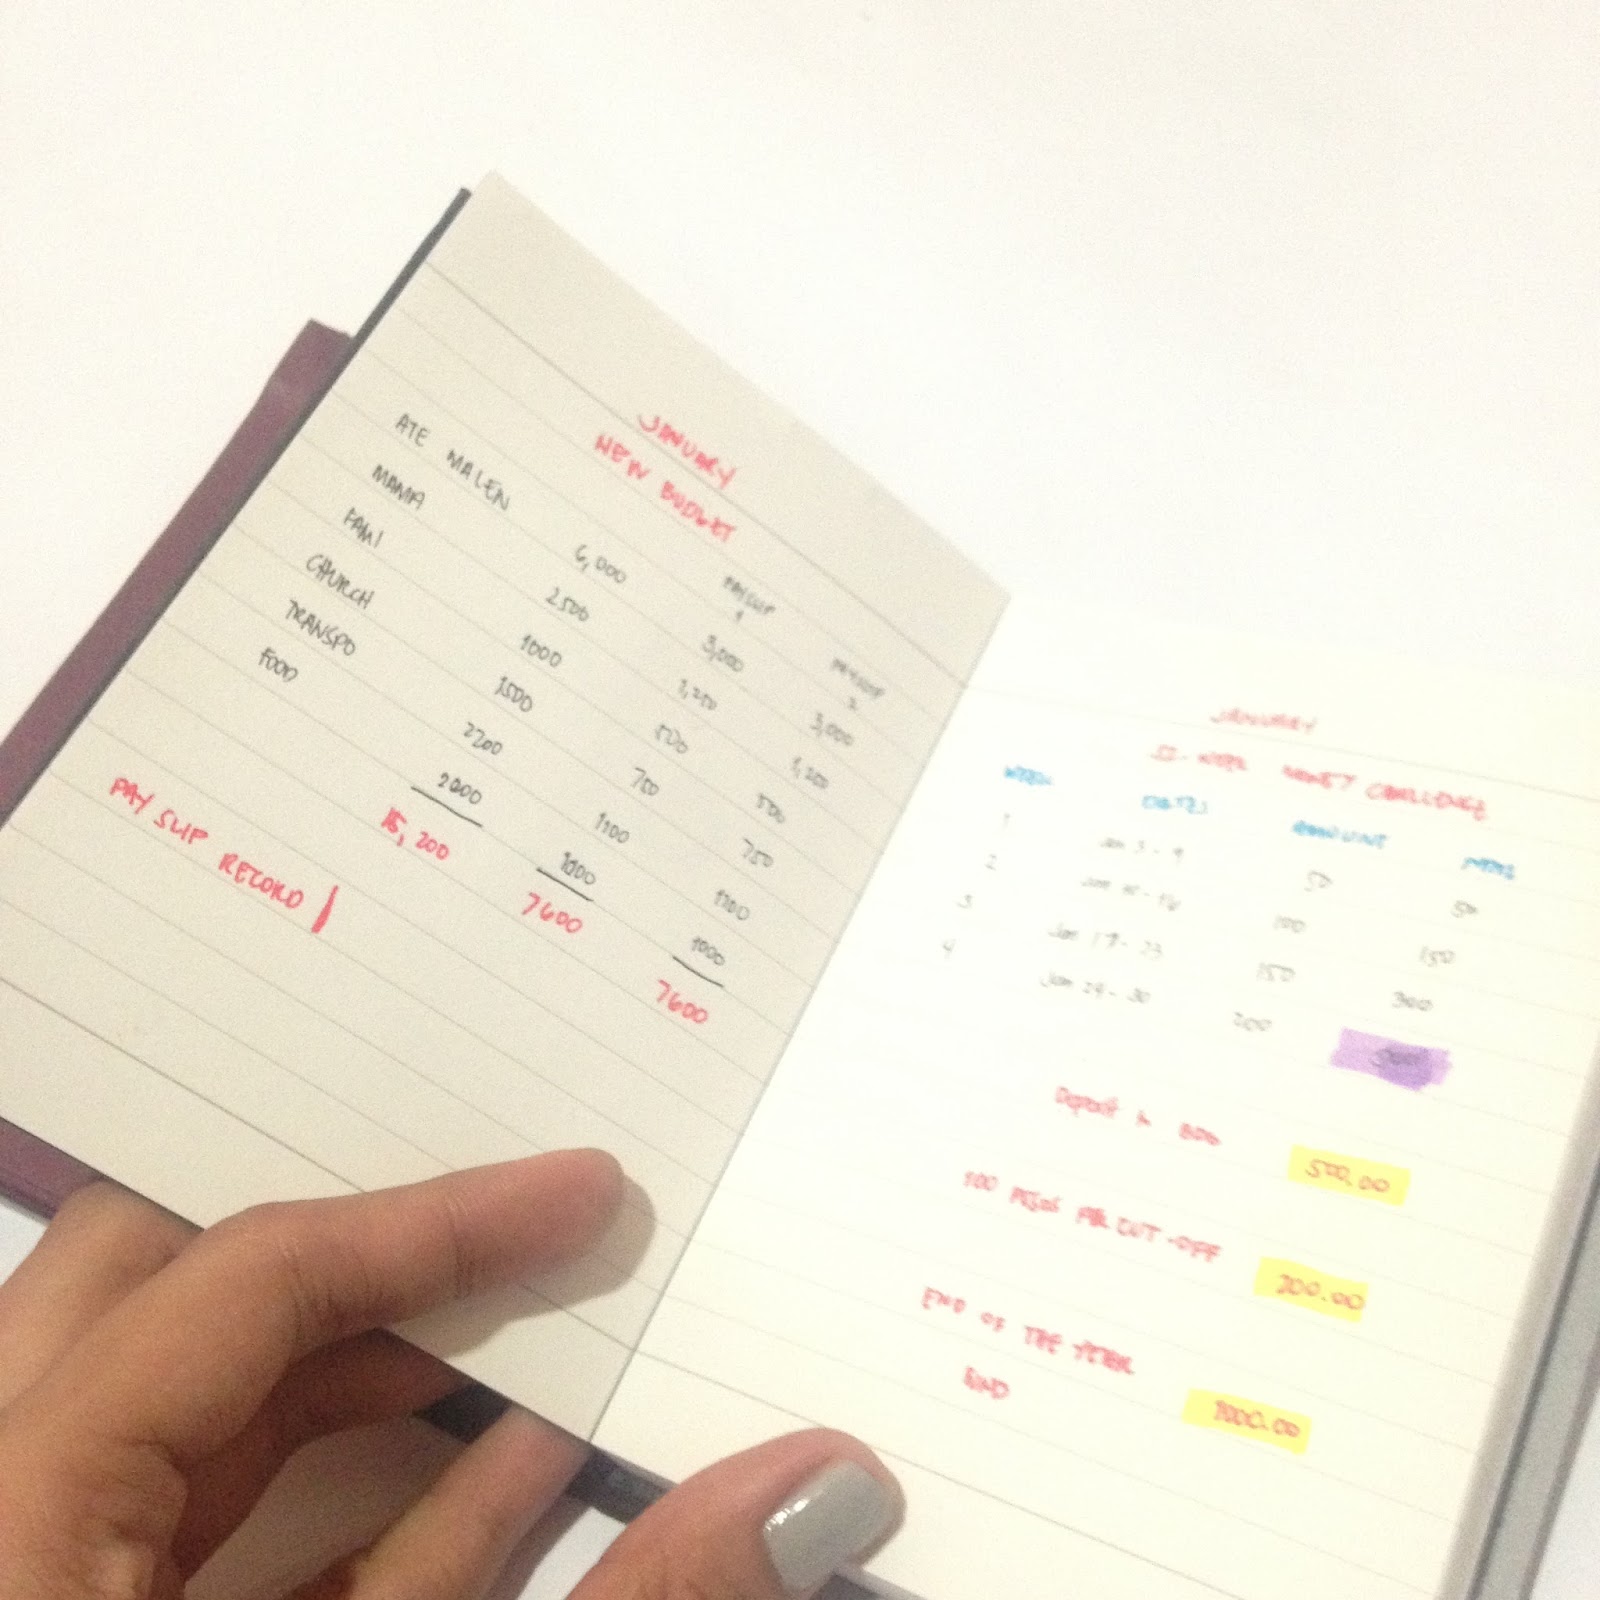 JANUARY
NEW BUDGET
PAY SLIP 1 PAY SLIP 2
ATE MALEN 6,000 3,000 3,000
MAMA 2500 1,250 1,250
FAMI 1000 500 500
CHURCH 1500 700 750
TRANSPO 2200 1100 1100
FOOD 2000 1000 1000
15,200 7600 7600
PAY SLIP RECORD
JANUARY
52-WEEK MONEY CHALLENGE
WEEK DATES AMOUNT
1 Jan 3-9 50 50
2 Jan 10-16 100 150
3 Jan 17-23 150 300
4 Jan 24-30 200
Deposit in BDO 500.00
100 PESOS PER CUT-OFF 200.00
END OF THE YEAR 1000.00
FUND